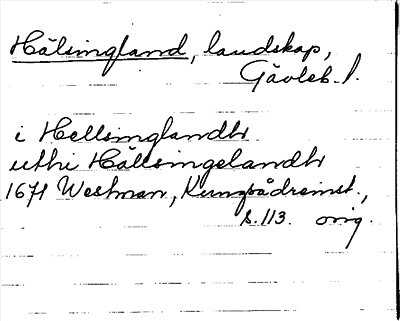 Hälsingland, landskap,
Gävleb. l.
i Hellsinglandh
uthi Hällsingelandh
1671 Westman, Kungsådreinst.,
s. 113. orig.